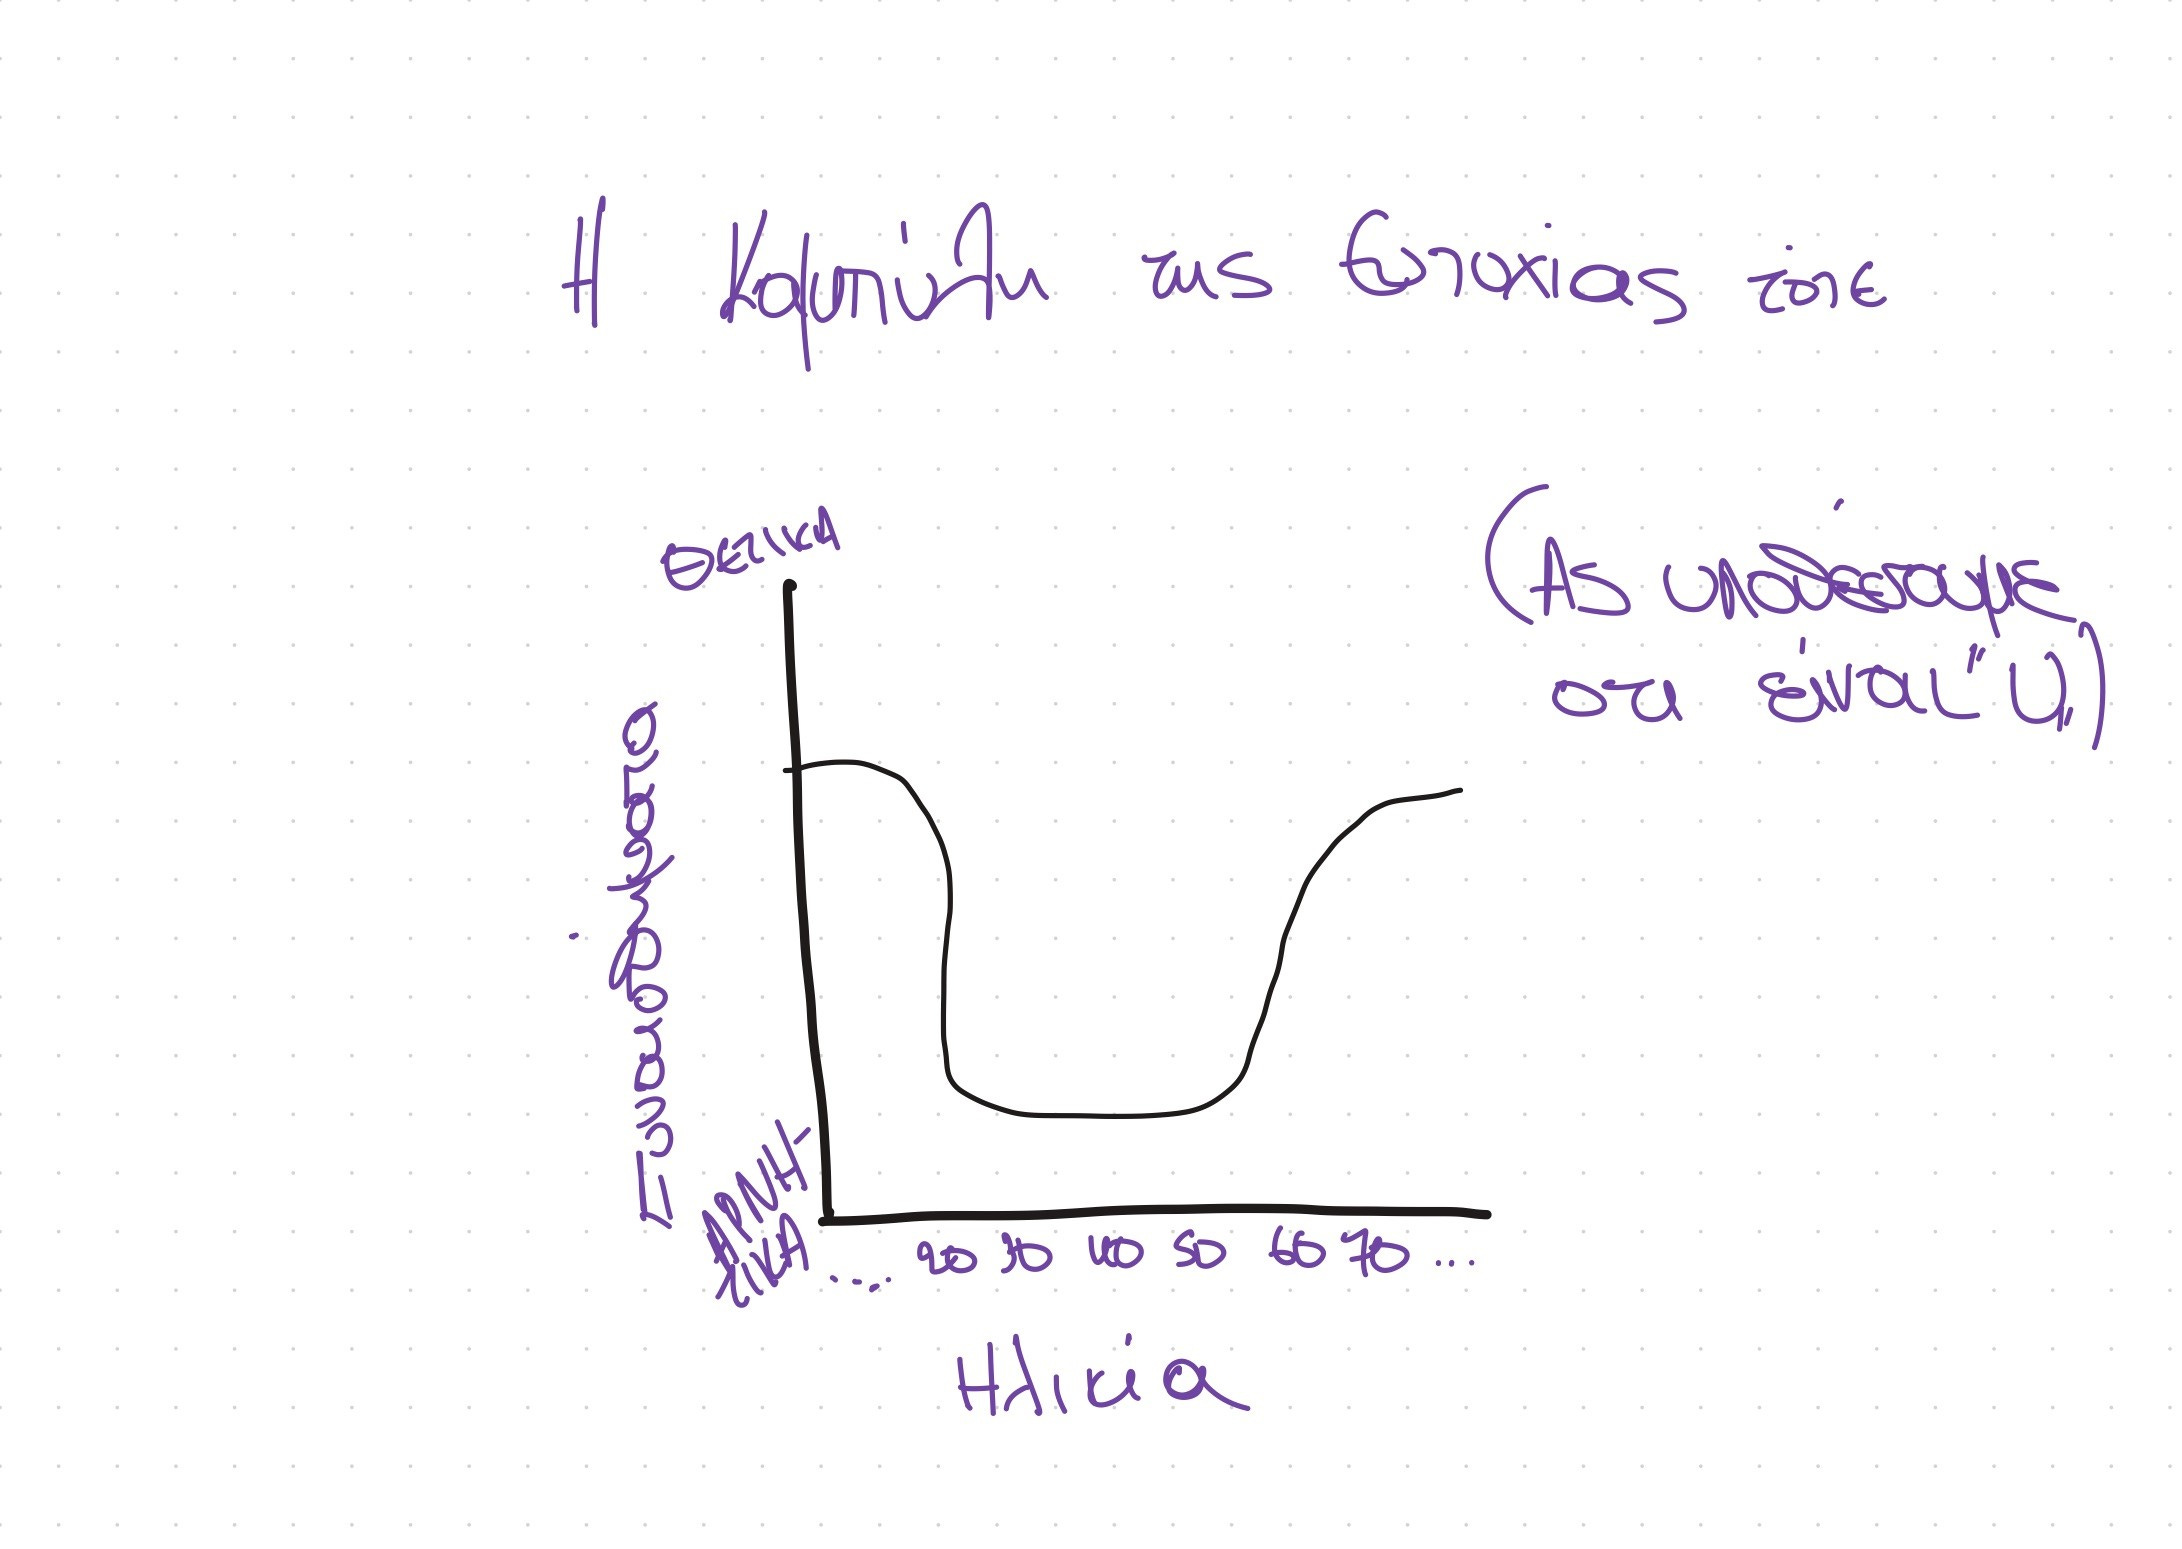 Η Καμπύλη της Ευτυχίας τότε
(Ας υποθέσουμε
οτι είναι "U")
ΘΕΤΙΚΑ
Συναισθήματα
ΑΡΝΗ-
ΤΙΚΑ
.... 20 30 40 50 60 70 ...
Ηλικία